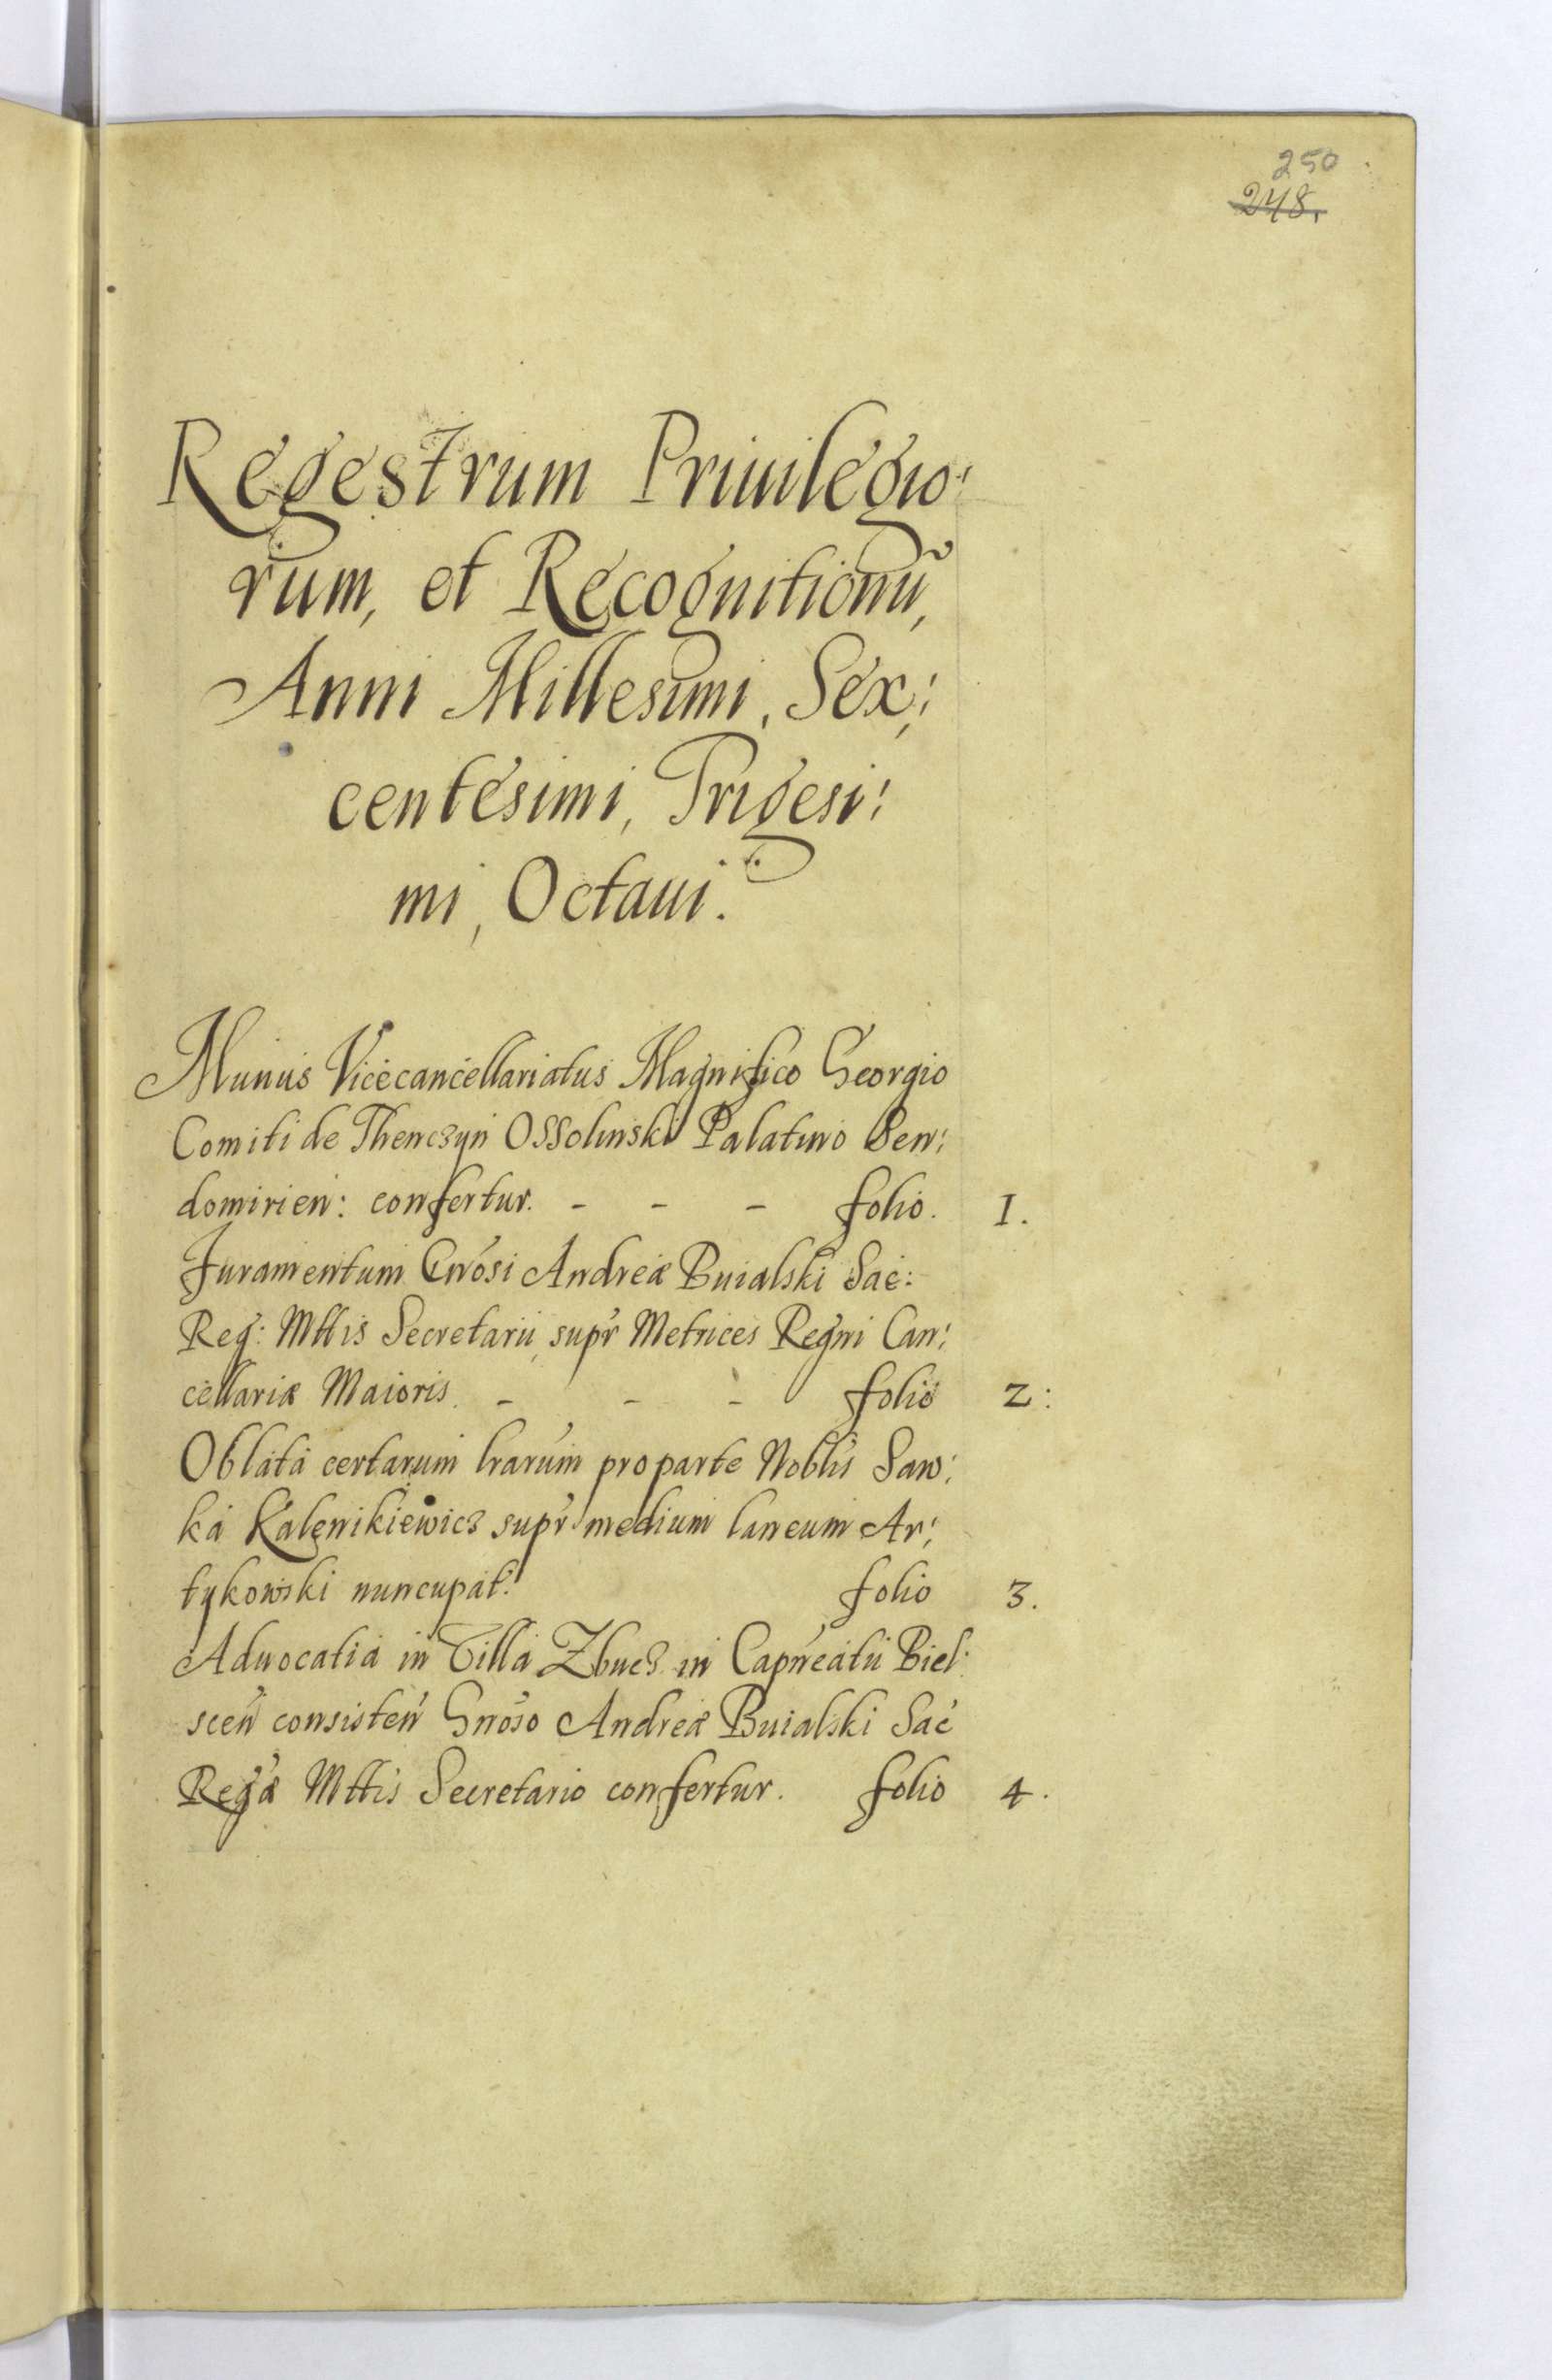 250
248.
Regestrum Priuilegio:
rum, et Recognitionũ,
Anni Millesimi, Sex:
centesimi, Trigesi:
mi, Octaui.
Munus Vicecancellariatus Magnifico Georgio
Comiti de Thenczyn Ossolinski Palatino Sen:
domirien: confertur. - - - folio. 1.
Juramentum Gnosi Andreæ Buialski Sac:
Reg: Mttis Secretarii, supr Metrices Regni Can:
cellariæ Maioris. - - - folio 2:
Oblata certarum lrarum pro parte Noblis Saw:
ka Kalenikiewicz supr medium laneum Ar:
tykowski nuncupat: folio 3.
Aduocatia in Villa Zbucz in Capneatu Biel:
scen consisten Gnoso Andreæ Buialski Sac
Regæ Mttis Secretario confertur. folio 4.